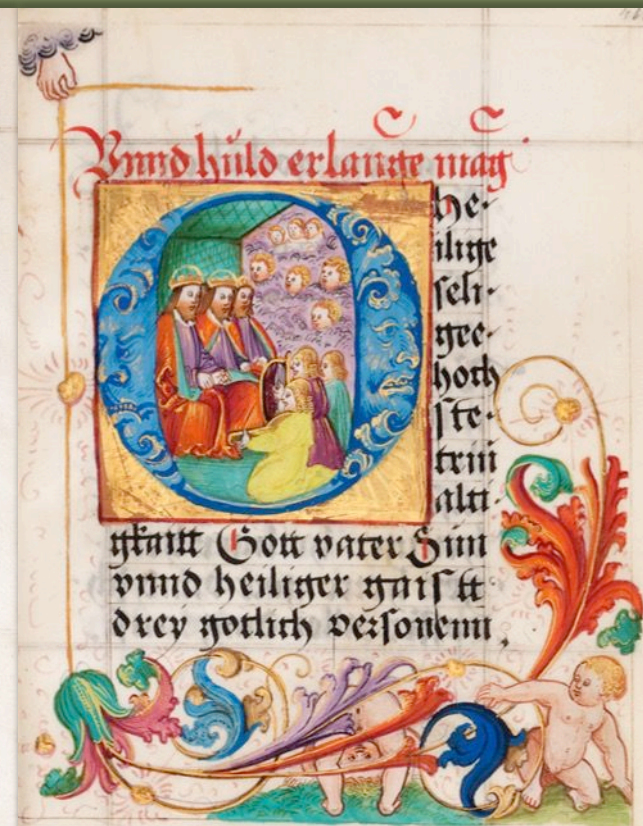 Vnnd huld erlange mag
O he-
ilige
seli-
gee-
hoch
ste-
trin
alti-
gkaitt Gott vater Sun
vnnd heiliger gaistt
drey gotlich personenn,